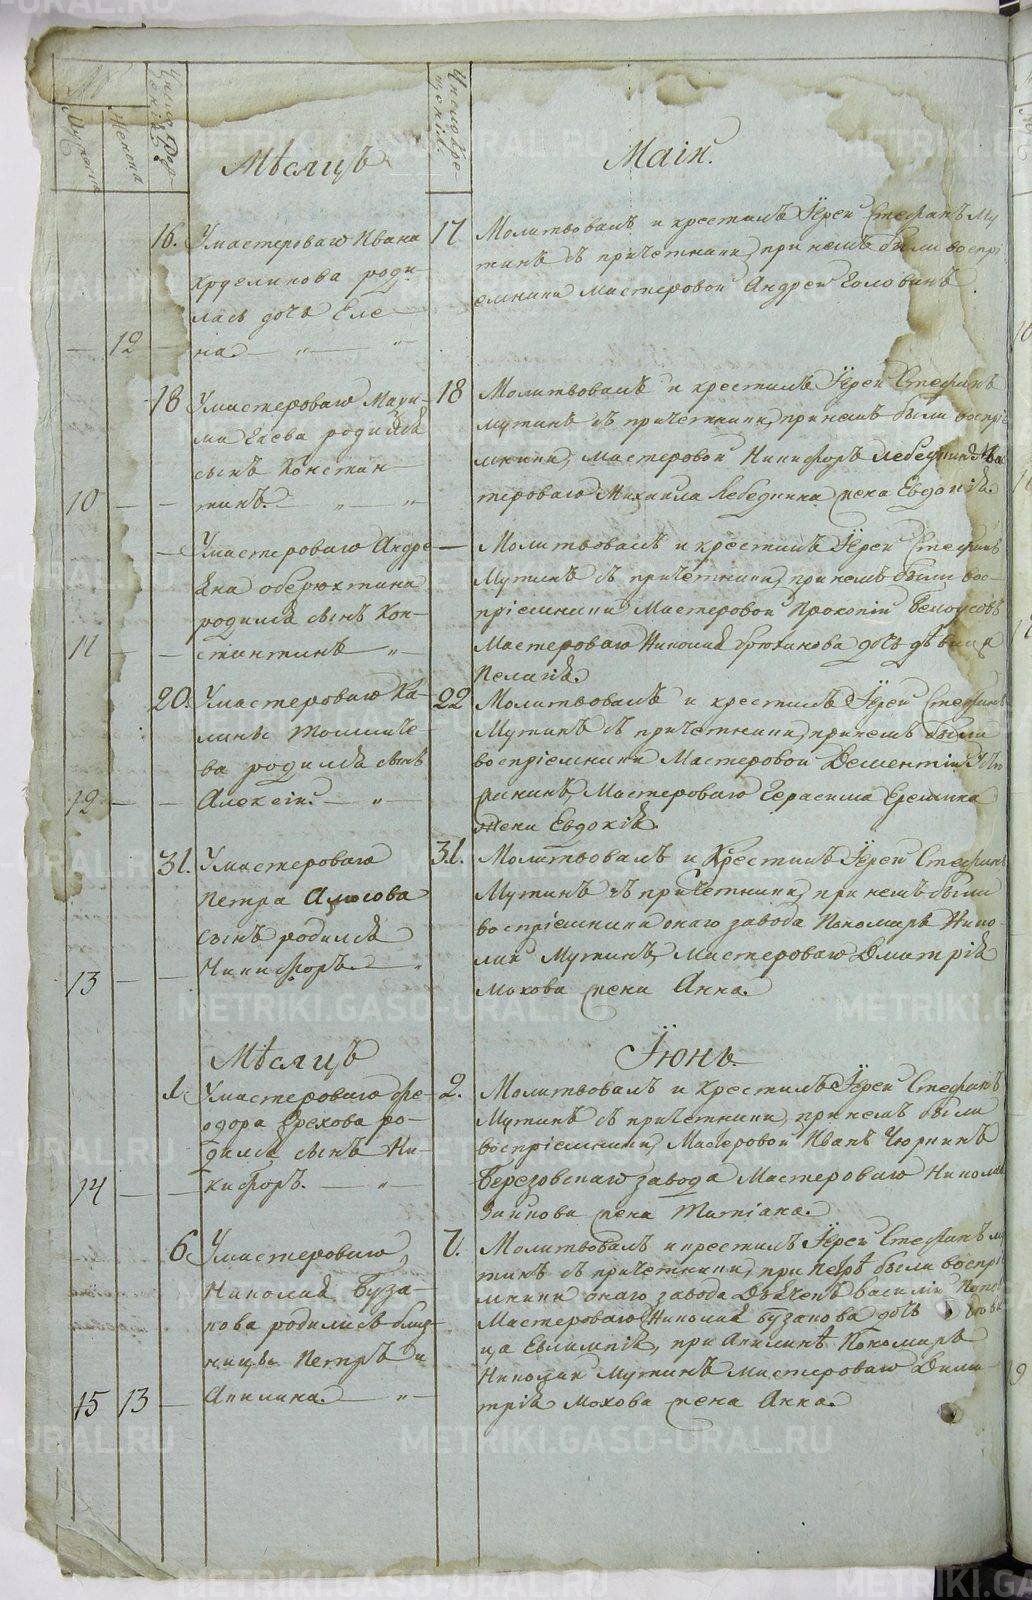 №
Мужеска
Женска
Число рож-
денія
Число кре-
щенія.
Мѣсяцъ
Маiи.
16. У мастероваго Ивана
роди-
лась дочь Еле-
12
на.
17 Молитвовалъ и крестилъ Іерей Стефанъ Му
тинъ съ причетники, при немъ были воспрі
емники Мастеровой Андрей Головинъ.
18 У мастероваго Макси-
ма родился
сынъ Констан-
10
тинъ.
18 Молитвовалъ и крестилъ Іерей Стефанъ
Мутинъ съ причетники, при немъ были воспріе
мники, Мастеровой Никифоръ Лебедкинъ Мас
тероваго Михаила Лебедкина жена Евдокія.
У мастероваго Андре
яна
родился сынъ Кон-
11
стантинъ
Молитвовалъ и крестилъ Іерей Стефанъ
Мутинъ съ причетники, при немъ были вос-
пріемники Мастеровой Прокопій Белоусовъ
Мастероваго Николая дочь дѣвица
Пелагія.
20. У мастероваго Ка-
лины
ва родился сынъ
12
Алексiи.
22 Молитвовалъ и крестилъ Іерей Стефанъ
Мутинъ съ причетники, при немъ были
воспріемники Мастеровой Дементій
Мастероваго Герасима Еремина
жена Евдокія.
31. У мастероваго
Петра
сынъ родился
13
Никифоръ.
31. Молитвовалъ и Крестилъ Іерей Стефанъ
Мутинъ съ причетники, при немъ были
воспріемники онаго завода Пономарь Нико-
лай Мутинъ, Мастероваго Дмитрія
Мохова жена Анна.
Мѣсяцъ
Іюнь.
1. У мастероваго Фе-
одора Орехова ро-
дился сынъ Ни-
14
кифоръ.
2. Молитвовалъ и крестилъ Іерей Стефанъ
Мутинъ съ причетники, при немъ были
воспріемники, Мастеровой Иванъ Чюркинъ
Березовскаго завода Мастероваго Николая
Заикова жена Татіана.
6. У мастероваго
Николая Буза-
нова родились близ-
нецы Петръ и
15 13
Акилина.
7. Молитвовалъ и крестилъ Іерей Стефанъ Му
тинъ съ причетники, при Петрѣ были воспріе
мники онаго завода Дьячекъ Василій Попо
Мастероваго Николая Бузанова дочь
ца Евлампія, при Акилинѣ Пономарь
Николай Мутинъ Мастероваго Дими-
трія Мохова жена Анна.
METRIKI.GASO-URAL.RU